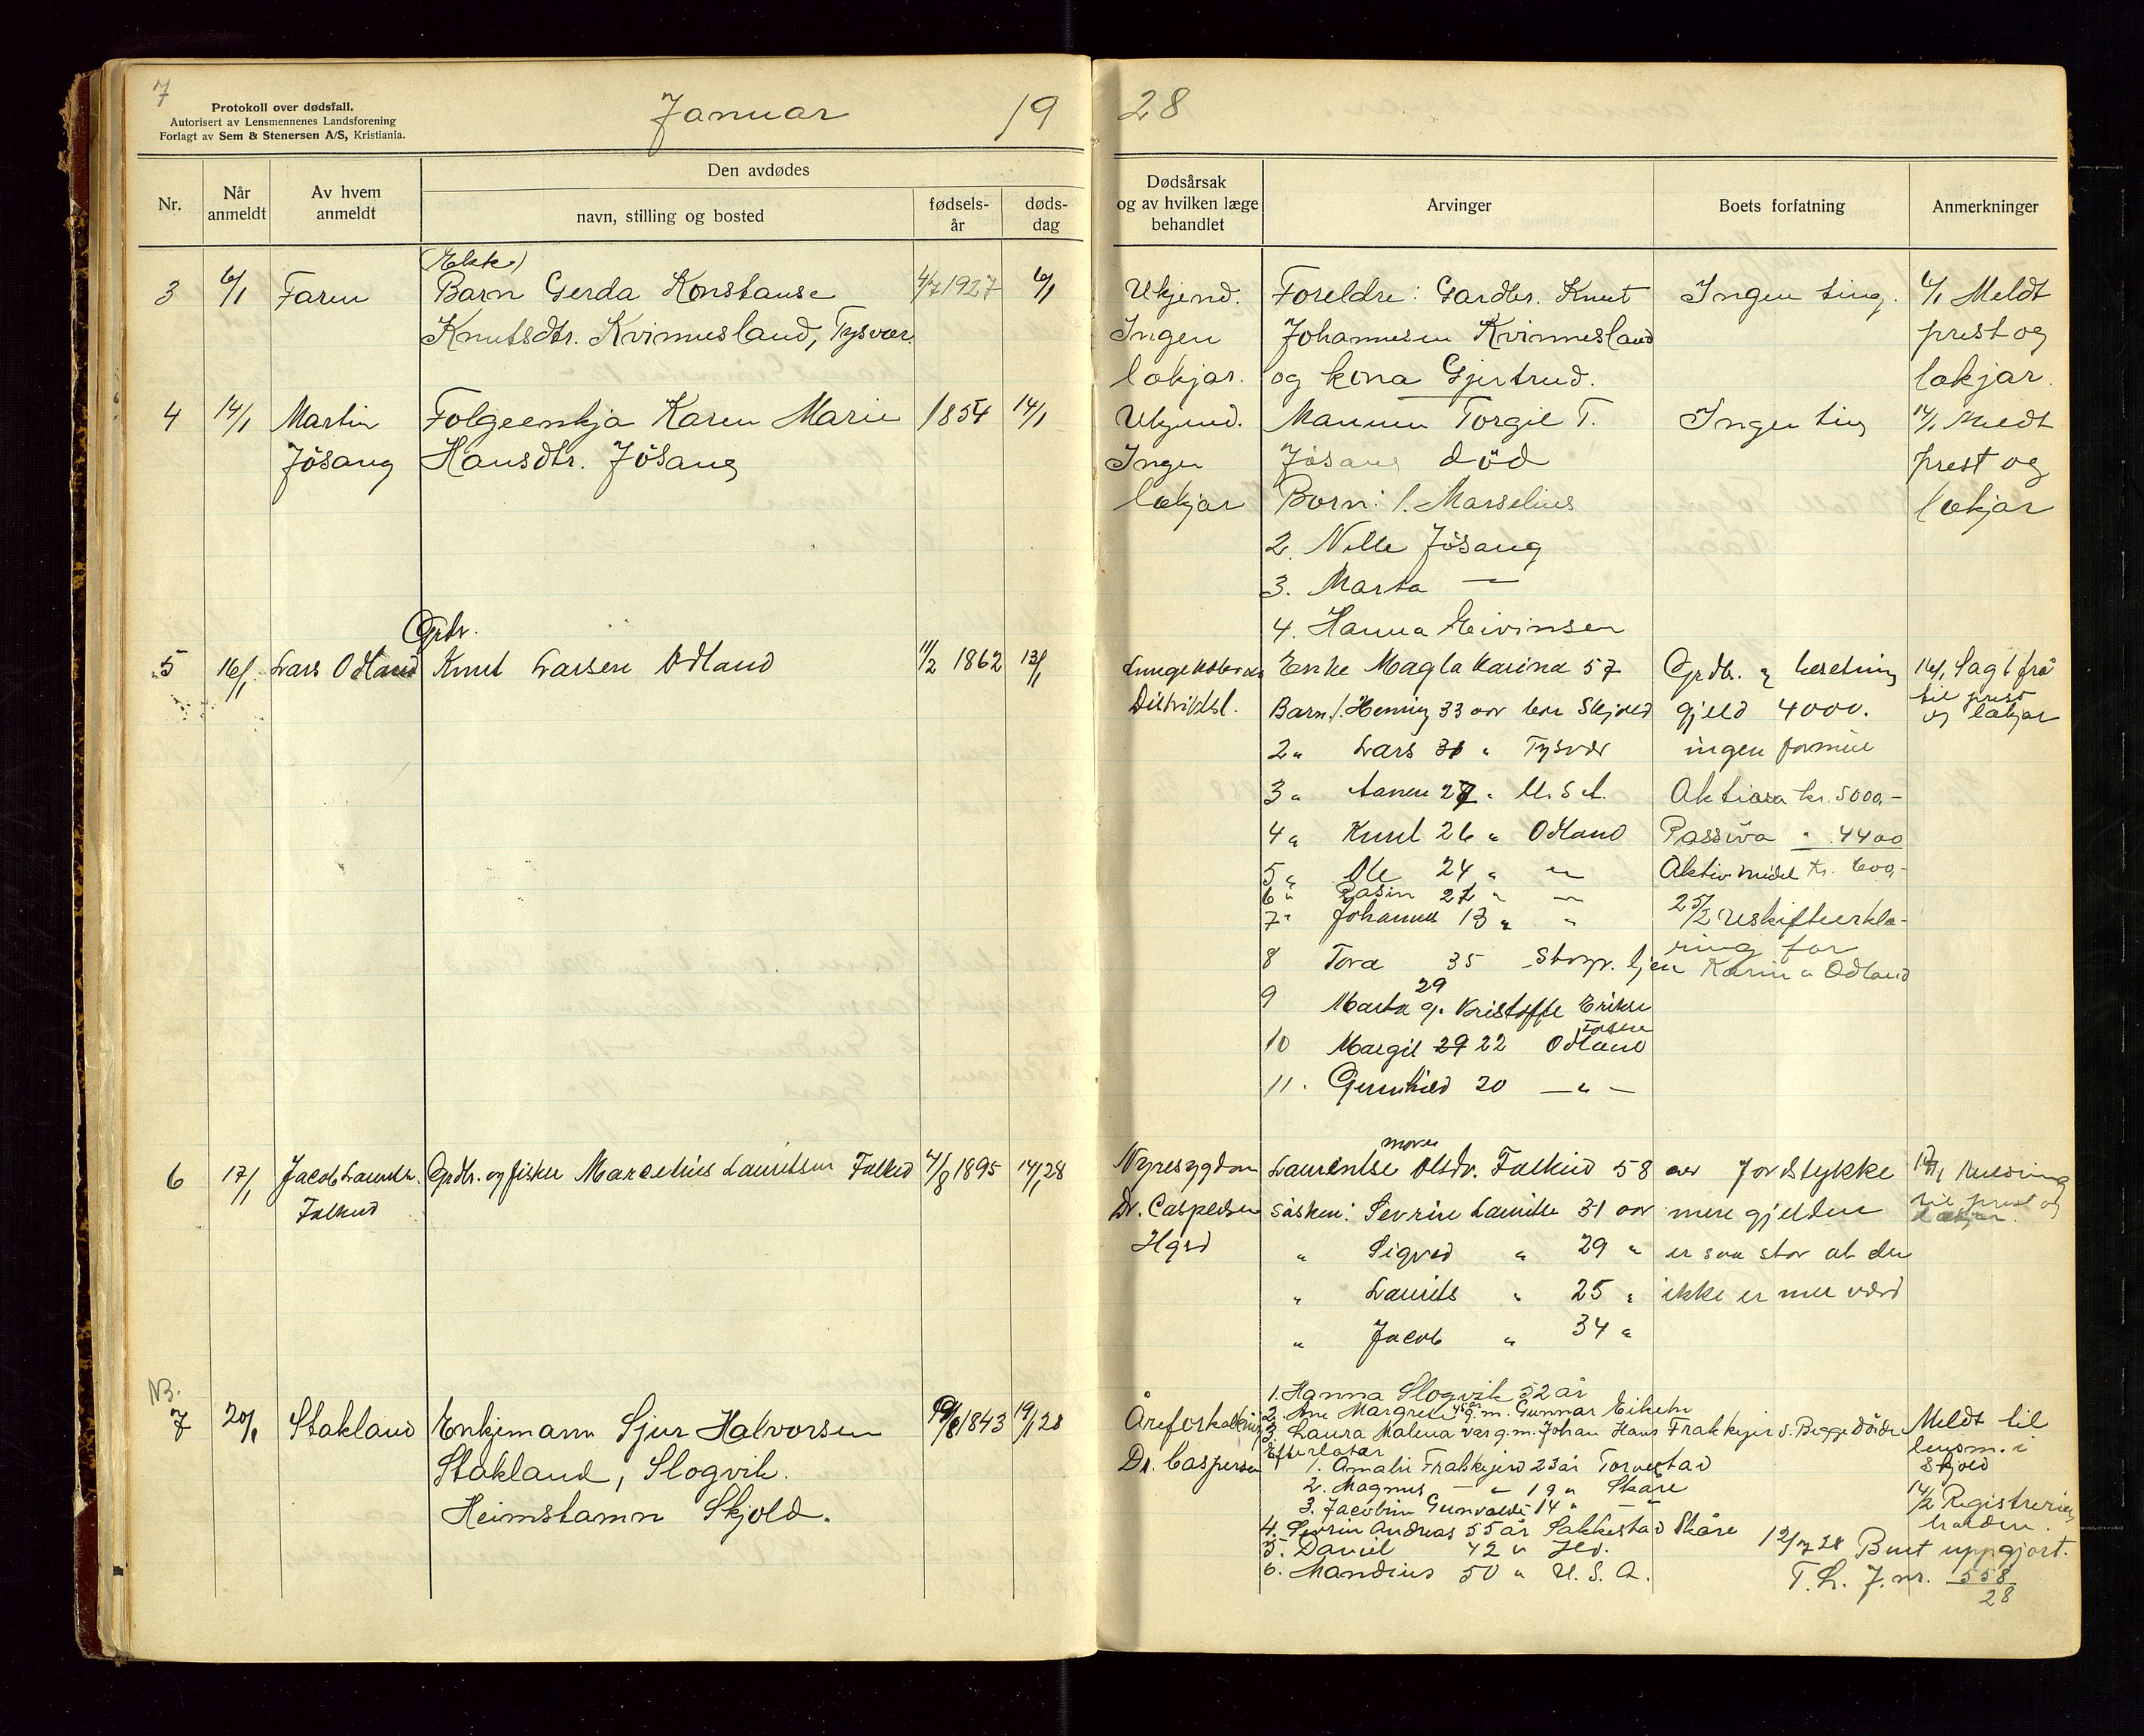 7
Protokoll over dødsfall.
Autorisert av Lensmennenes Landsforening
Forlagt av Sem & Stenersen A/S, Kristiania.
Januar 19 28
Nr.
Når anmeldt
Av hvem anmeldt
Den avdødes
navn, stilling og bosted
fødsels-år
døds-dag
Dødsårsak og av hvilken læge behandlet
Arvinger
Boets forfatning
Anmerkninger
(Ekte)
3 6/1 Faren Barn Gerda Konstanse 4/7 1927 6/1 Ukjend. Foreldre: Gardbr. Knut Ingen ting. 6/1 Meldt
Knutsdtr. Kvinnesland, Tysvær. Ingen Johannesen Kvinnesland prest og
lækjar. og kona Gjertrud. lækjar.
4 14/1 Martin Folgeenkja Karen Marie 1854 14/1 Ukjend. Mannen Torgil T. Ingen ting 14/1 Meldt
Jösang Hansdtr. Jösang Ingen Jösang död prest og
lækjar Born: 1. Marselius lækjar
2. Nille Jösang
3. Marta —
4. Hanna Eivinsen
Grdr.
5 16/1. Lars Odland Knut Larsen Odland 11/2 1862 13/1 Enke Magla Karina 57 Grdbr. 16/1 Sagt frå
Distriktsl. Barn 1. Henrig 33 aar bor Skjold gjeld 4000. til prest
og lækjar
2 " Lars 31 " Tysvær ingen formue
3 " 27 " U.S.A. Aktiva kr. 5000,-
4 " Knut 26 " Odland Passiva " 4400
5 " Ole 24 " — Aktiv midel Kr. 600,-
6 " Rasin 21 " —
7 " Johannes 13 " " 25/2 uskifteerklæ-
8 Tora 35 ring for
Karina Odland
29
9 Marta g. Kristoffe Erikse
10 Margit 29 22 Odland
11. Gunhild 20 — " —
moren
6 17/1 Jacob Lauritz. Grdbr. og fisker Marcelius Lauritsen Falkeid 4/8 1895 14/1 28 Nyresygdom Laurentse Olsdr. Falkeid 58 aar Jordstykke 17/1 Melding
Falkeid Dr. Caspersen Sösken: Sevrine Lauritse 31 aar men gjelden til prest og
lækjar.
Hgsd " Sigvard " 29 " er saa stor at den
" Laurits " 25 " ikke er mer værd
" Jacob " 34 "
NB.
1. Hanna Slogvik 52 år
7 20/1 Stakland Enkjemann Sjur Halvorsen 1843 19/1 28 Åreforkalkning 2. Ane Margrete 45 år g.m. Gunnar Eikeho
3. Laura Malena var g.m. Johan Hans Frakkejer d. Begge döde Meldt til
Efterlatar lensm. i
Stakland, Slogvik. Dr. Caspersen 1. Amalie Frakkjerd 23 år Torvestad Skjold
2. Magnus — " 19 " Skåre
Heimstamn Skjold. 3. Jacobin Gunvalda 14 " — " 14/2 Registrering
halden.
4. Sevrin Andreas 55 år Sakkestad Skåre
5. Daniel 42 " Hd. 12/7 28 Buet uppgjort.
6. Mandius 50 " U.S.A. T. L. J.nr. 558
28